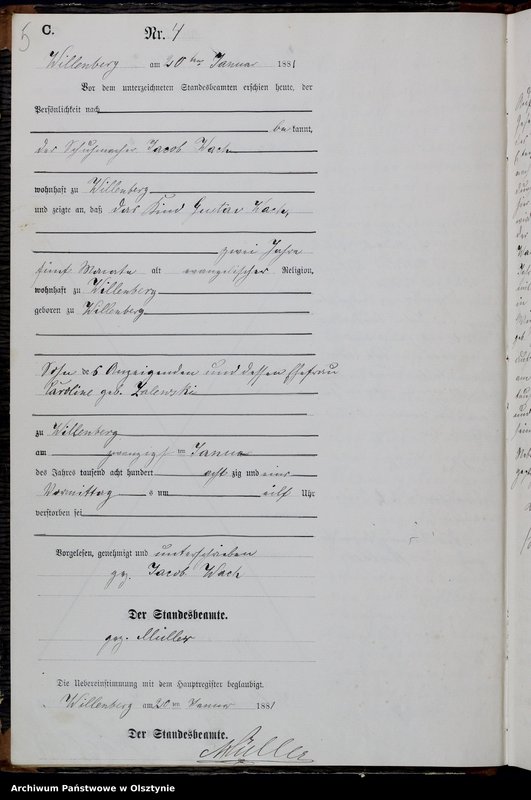 5
C.
Nr. 4
Willenberg am 20ten Januar 1881
Vor dem unterzeichneten Standesbeamten erschien heute, der
Persönlichkeit nach
be kannt,
der Schuhmacher Jacob Wach
wohnhaft zu Willenberg
und zeigte an, daß das Kind Gustav Wach,
zwei Jahre
fünf Monate alt evangelischer Religion,
wohnhaft zu Willenberg
geboren zu Willenberg
Sohn des Anzeigenden und dessen Ehefrau
Karoline geb. Zalewski
zu Willenberg
am zwanzigsten Januar
des Jahres tausend acht hundert acht zig und eins
Vormittag s um eilf Uhr
verstorben sei
Vorgelesen, genehmigt und unterschrieben
gez. Jacob Wach
Der Standesbeamte.
gez. Müller
Die Uebereinstimmung mit dem Hauptregister beglaubigt.
Willenberg am 20ten Januar 1881
Der Standesbeamte.
Müller
Archiwum Państwowe w Olsztynie